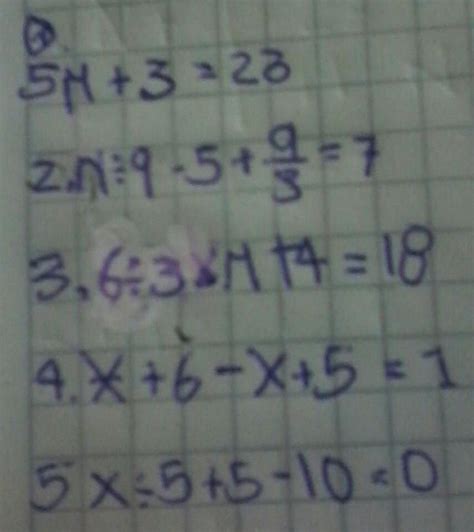 5n + 3 = 23
2. n ÷ 9 · 5 + 9/3 = 7
3. 6 ÷ 3 · n + 4 = 18
4. x + 6 - x + 5 = 1
5 x ÷ 5 + 5 - 10 = 0